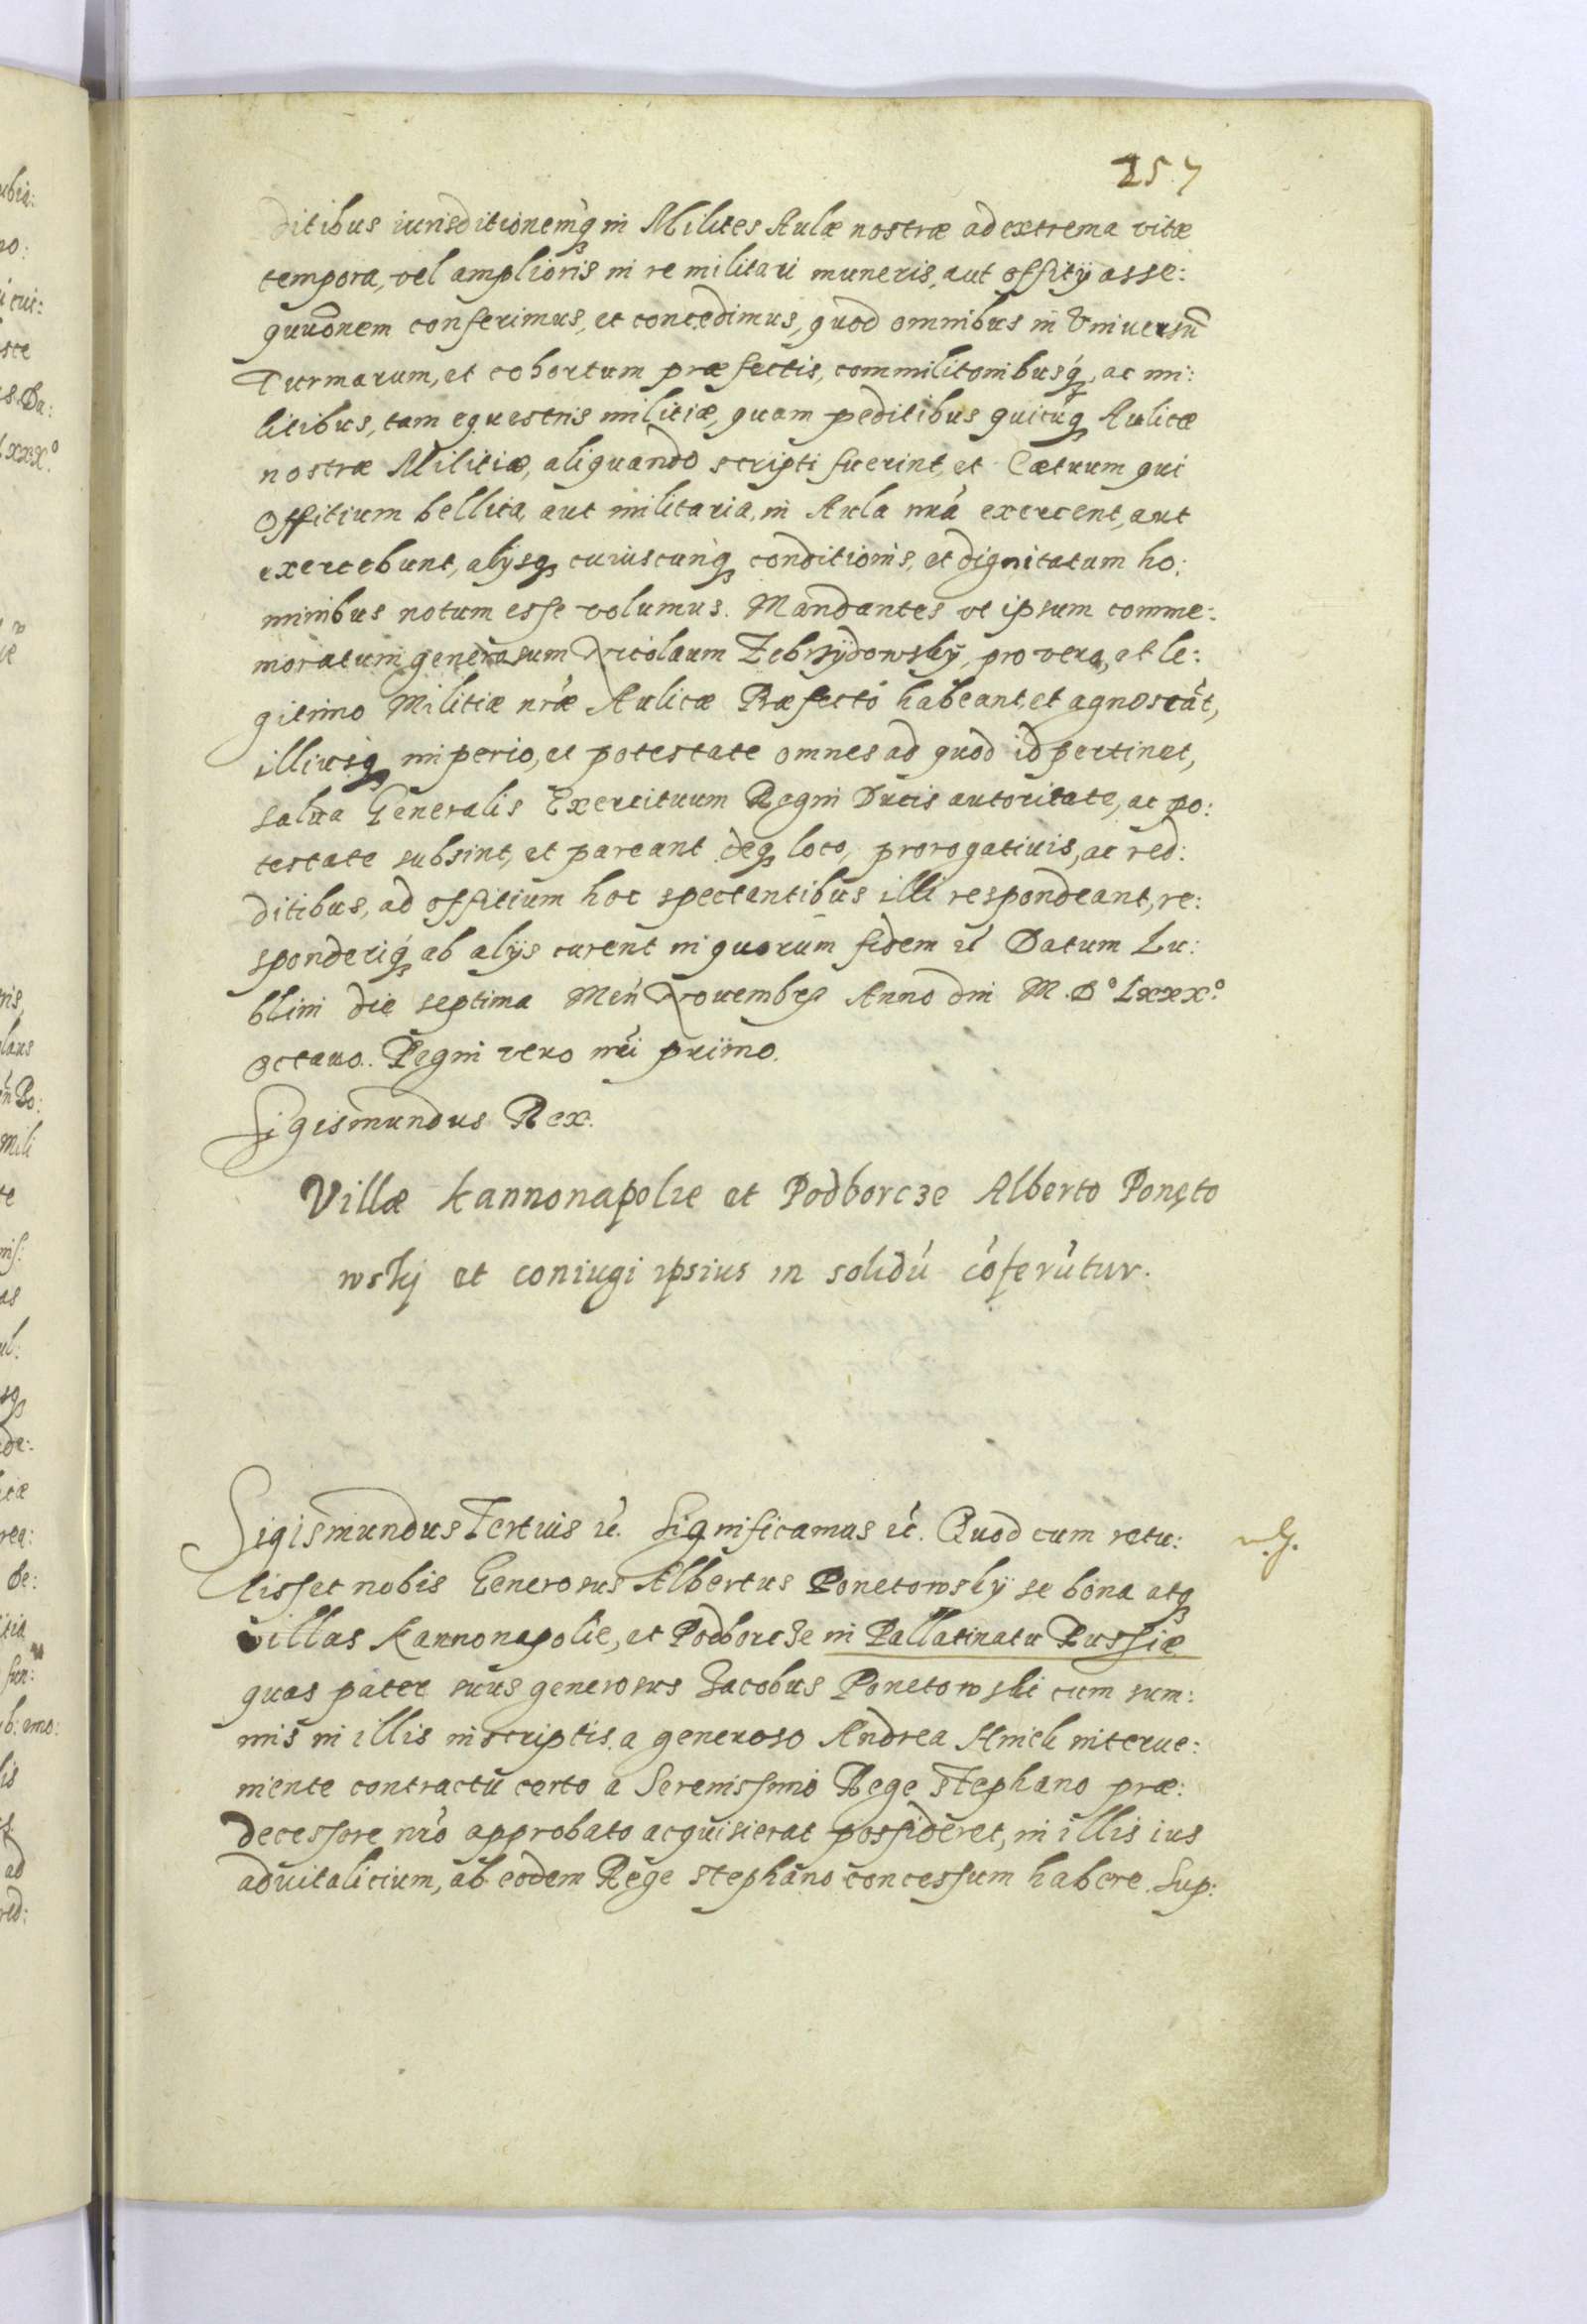 257
ditibus iurisditionemq́ in Milites Aulæ nostræ ad extrema vitæ
tempora, vel amplioris in re militari muneris, aut offitÿ asse:
quuonem conferimus, et concedimus, quod omnibus in Vniuersū
Turmarum, et cohortum præfectis, commilitonibusq́, ac mi:
litibus, tam equestris militiæ, quam peditibus quicúq Aulicæ
nostræ Militiæ, aliquando scripti fuerint, et Cætuum qui
Offitium bellica, aut militaria, in Aula nrá exercent, aut
exercebunt, alÿsq cuiuscunq́ conditionis, et dignitatum ho:
minibus notum esse volumus. Mandantes vt ipsum comme:
moratum generosum Nicolaum Zebrzÿdowskÿ, pro vero, et le:
gitimo Militiæ nrǽ Aulicæ Præfectó habeant, et agnoscát,
illiusq imperio, et potestate omnes ad quod id pertinet,
salua Generalis Exercituum Regni Ducis autoritate, ac po:
testate subsint, et pareant deq loco, prorogatiuis, ac red:
ditibus, ad offitium hoc spectantibus illi respondeant, re:
sponderiq́ ab alÿs curent in quorum fidem ꝛć Datum Lu:
blini die septima Meń Nouembrȩ Anno dni M.D° Lxxx°
octauo. Regni vero nrí priimo.
Sigismundus Rex.
Villæ kannonapolie et Podborcze Alberto Ponęto
wskj et coniugi ipsius in solidú cóferútur.
Sigismundus Tertius ꝛć. Significamus ꝛć. Quod cum retu:
lisset nobis Generosus Albertus Ponetowskÿ se bona atq
villas kannonapolie, et Podborcze in Pallatinatu Russiæ
quas pater suus generosus Jacobus Ponetowski cum sum:
mis in illis inscriptis a generoso Andrea Hnich interue:
niente contractu certo a Serenissimo Rege Stephano præ:
decessore nró approbato acquisierat possideret, in illis ius
aduitalicium, ab eodem Rege Stephano concessum habere. Sup: